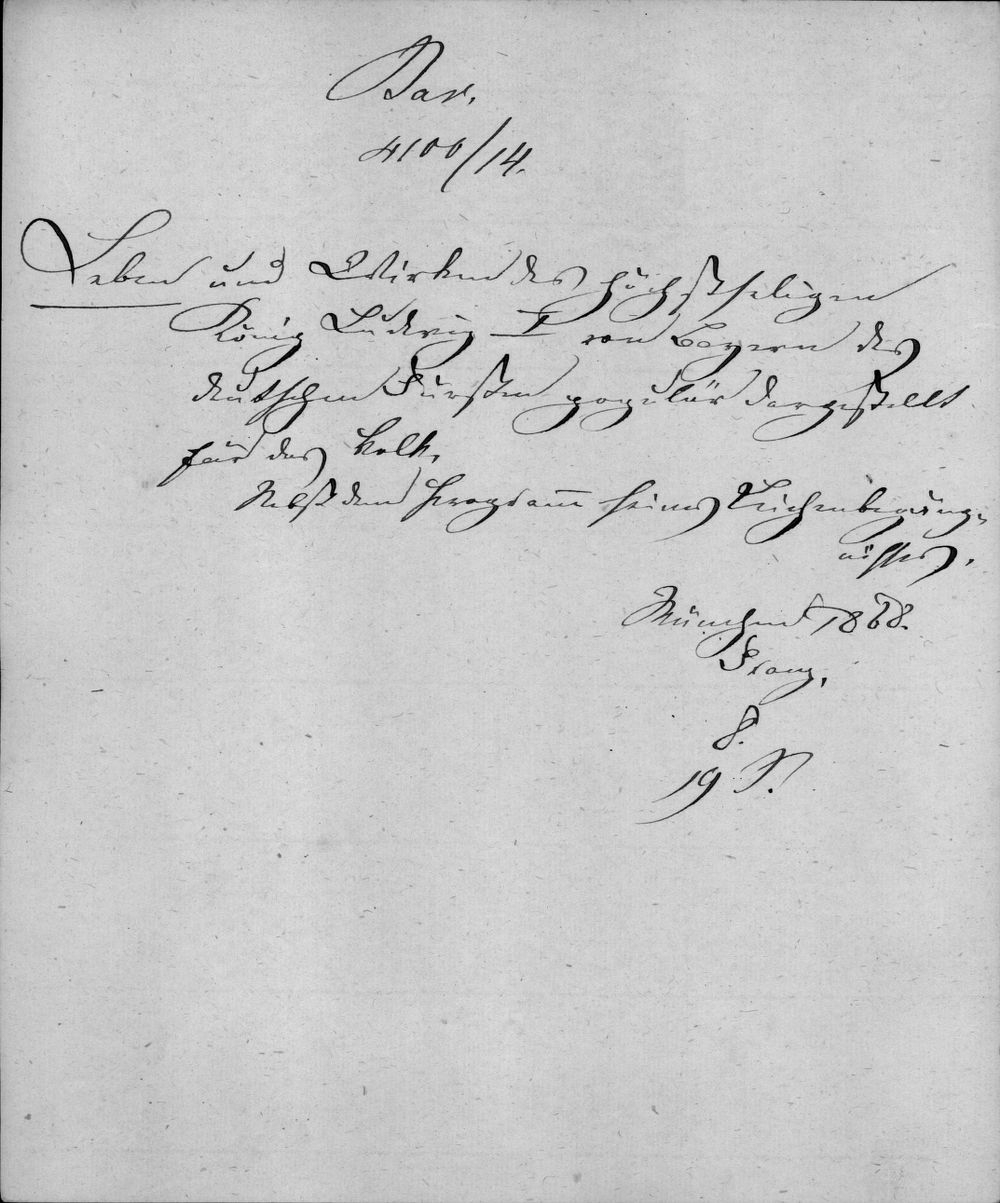 Bav.
4100/14.
Leben und Wirken des höchstseligen
König Ludwig I von Bayern des
deutschen Fürsten populär dargestellt
für das Volk.
Nebst dem Programm seines Leichenbegäng-
nisses.
München 1868.
Franz.
8.
19 S.